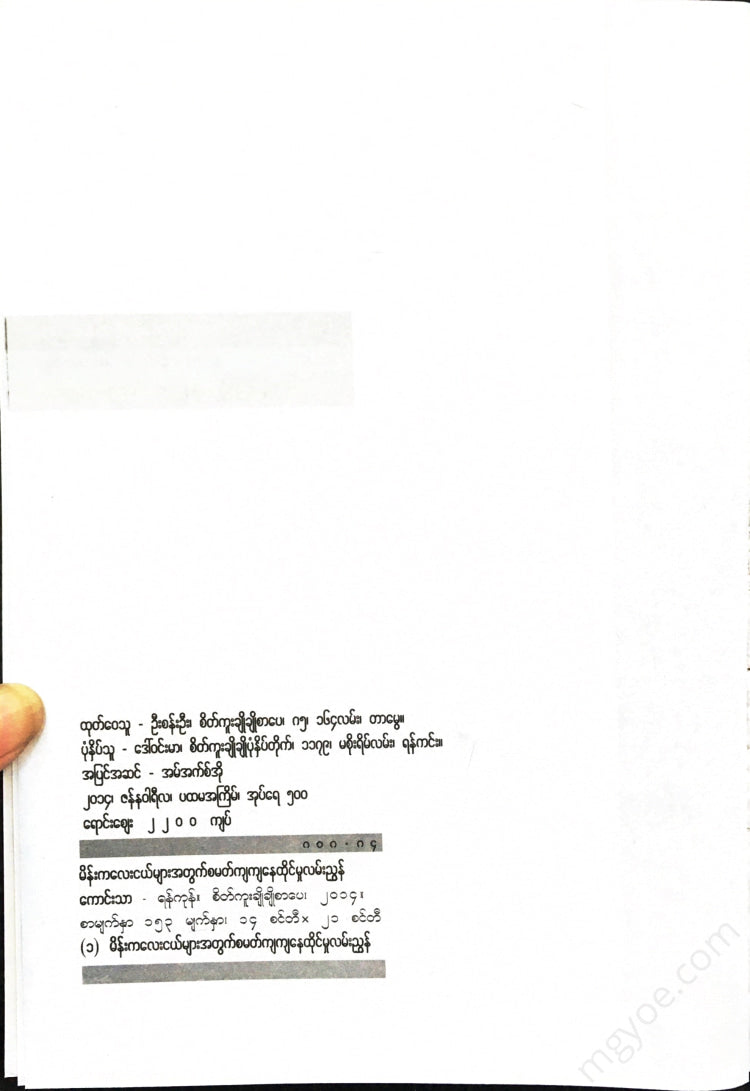 ထုတ်ဝေသူ - ဦးစန်းဦး၊ စိတ်ကူးချိုချိုစာပေ၊ ဂ၅၊ ၁၆၄လမ်း၊ တာမွေ။
ပုံနှိပ်သူ - ဒေါ်ဝင်းမာ၊ စိတ်ကူးချိုချိုပုံနှိပ်တိုက်၊ ၁၁၇၉၊ မစိုးရိမ်လမ်း၊ ရန်ကင်း။
အပြင်အဆင် - အမ်အက်စ်အို
၂၀၁၄၊ ဇန်နဝါရီလ၊ ပထမအကြိမ်၊ အုပ်ရေ ၅၀၀
ရောင်းဈေး ၂၂၀၀ ကျပ်
၈၀၈ . ၈၄
မိန်းကလေးငယ်များအတွက်စမတ်ကျကျနေထိုင်မှုလမ်းညွှန်
ကောင်းသာ - ရန်ကုန်။ စိတ်ကူးချိုချိုစာပေ၊ ၂၀၁၄။
စာမျက်နှာ ၁၅၃ မျက်နှာ၊ ၁၄ စင်တီ× ၂၁ စင်တီ
(၁) မိန်းကလေးငယ်များအတွက်စမတ်ကျကျနေထိုင်မှုလမ်းညွှန်
mgyoe.com